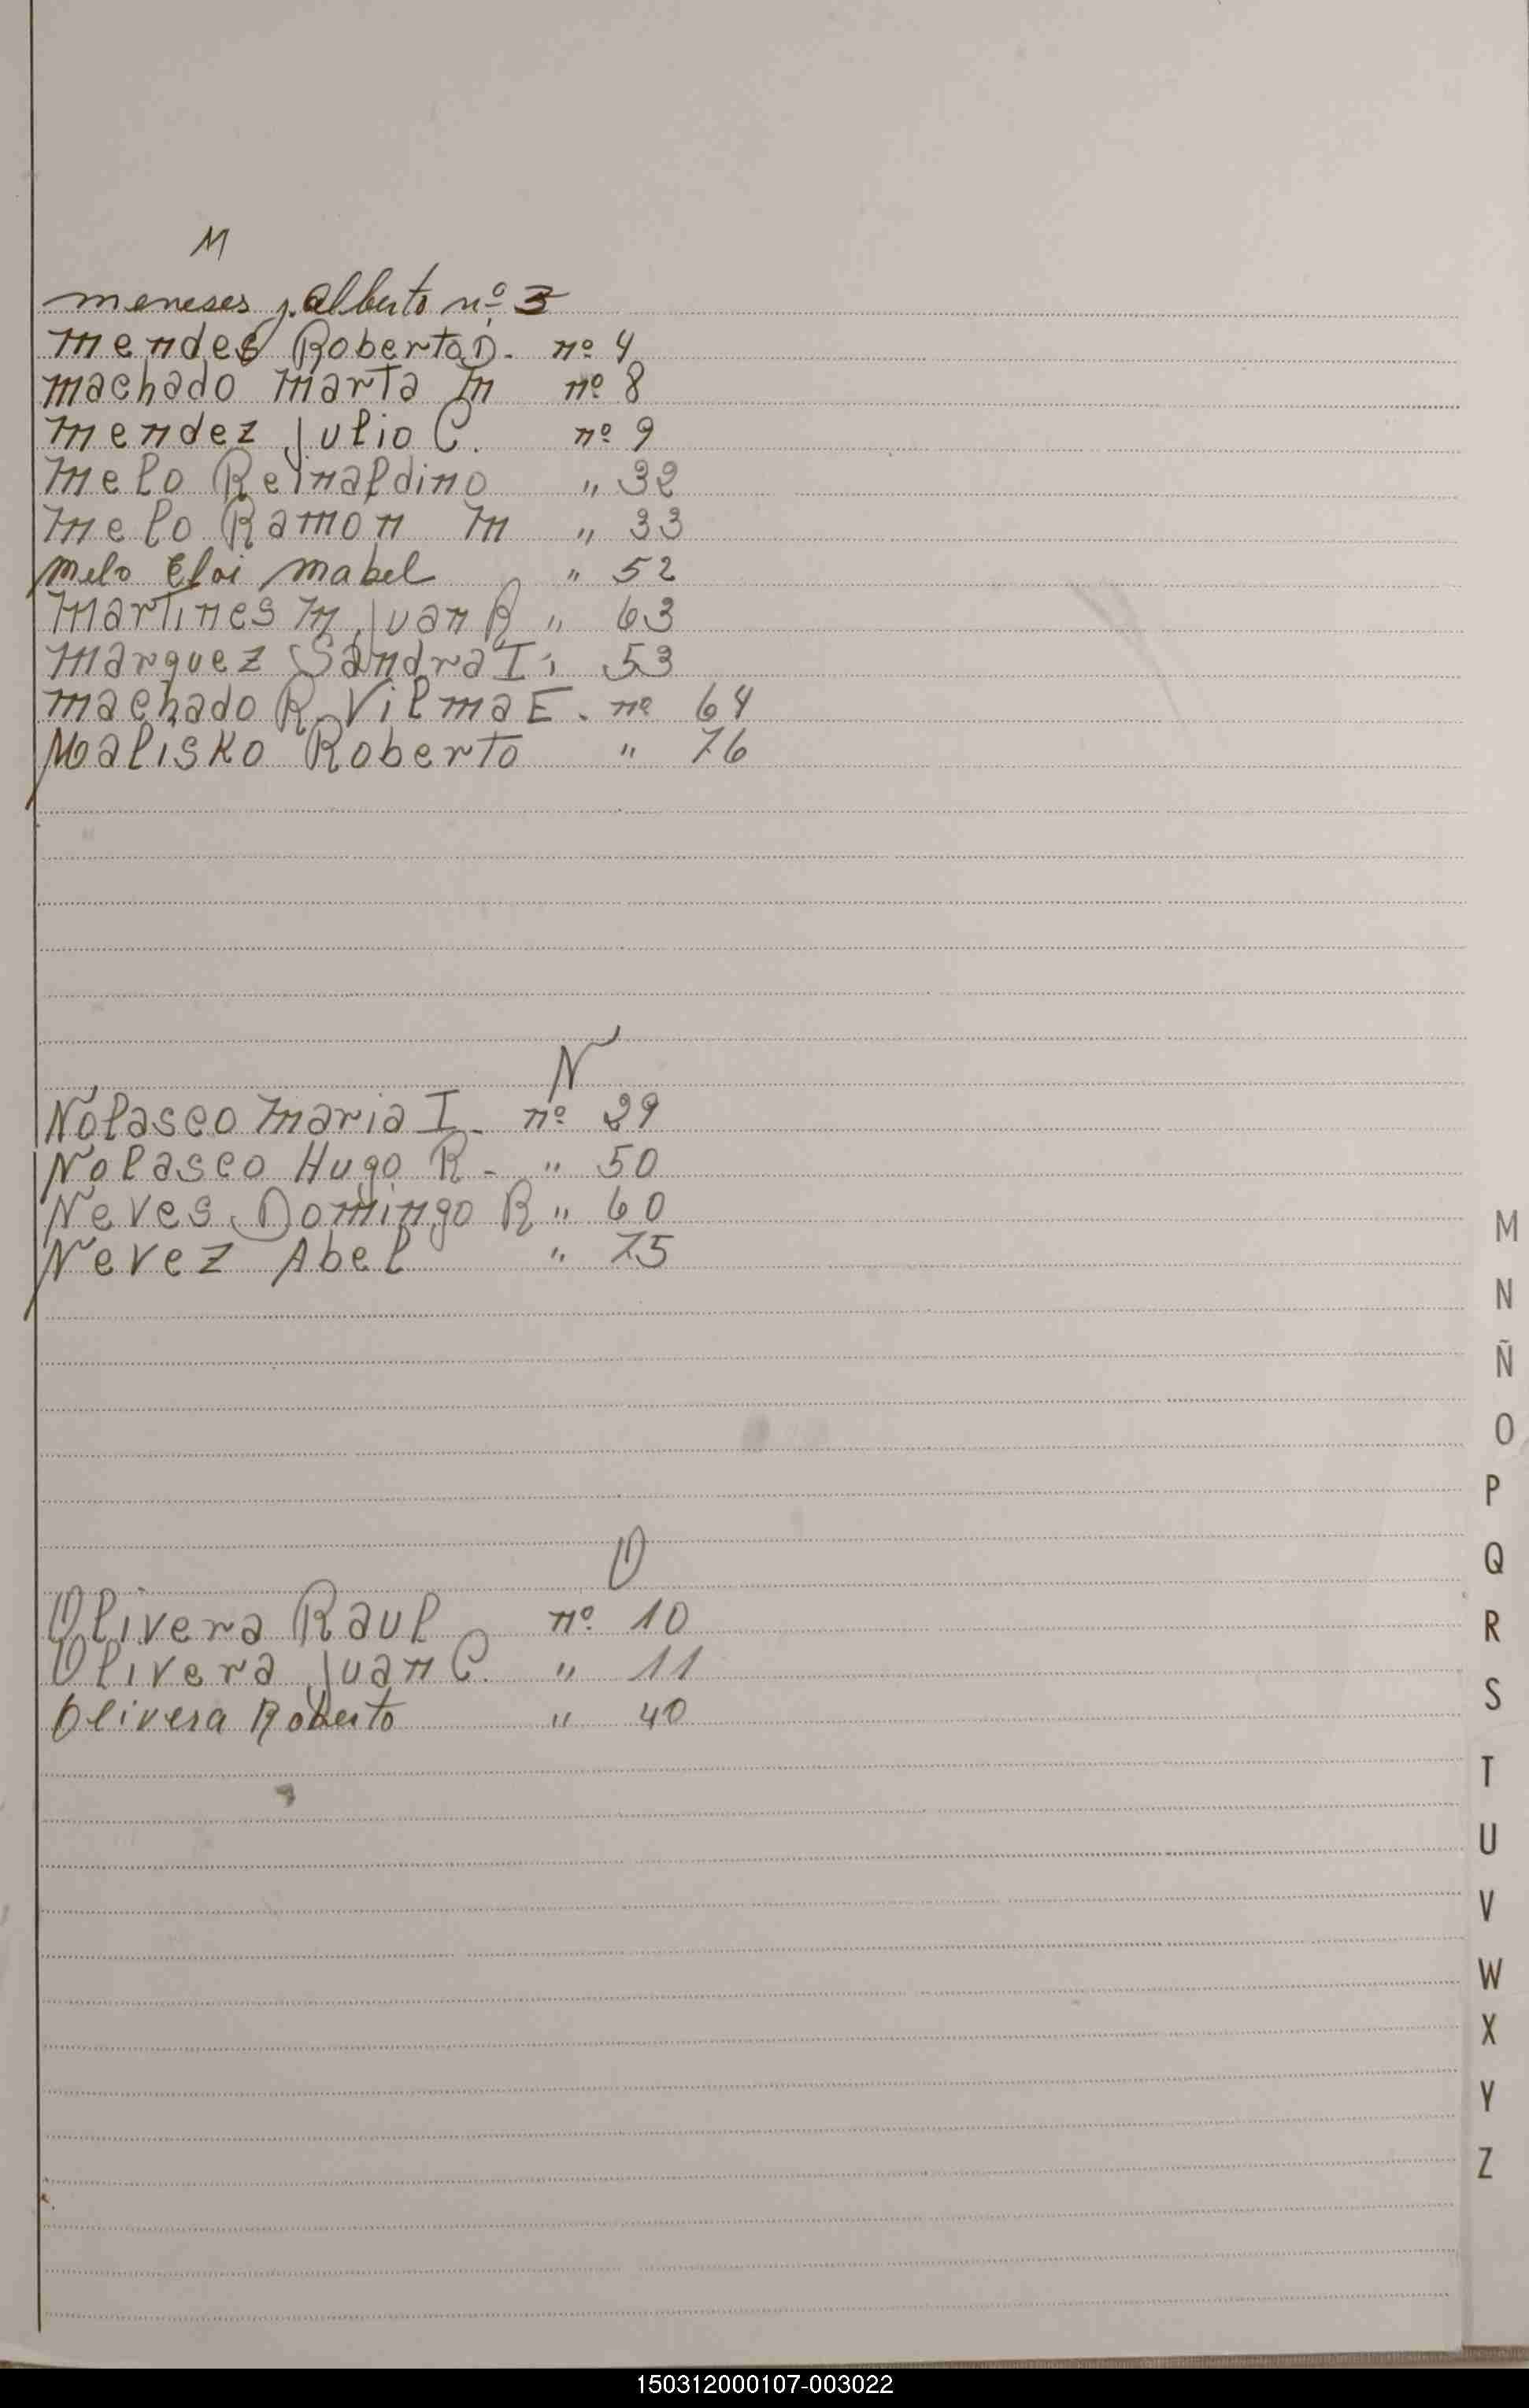 M
meneses j. alberto nº 3
Mendes Roberto D. nº 4
machado Marta M nº 8
Mendez Julio C. nº 9
Melo Reinaldino " 32
Melo Ramon M " 33
melo Eloi mabel " 52
Martines M Juan R " 63
Marquez Sandra I " 53
machado R. Vilma E. nº 64
Malisko Roberto " 76
N
Nolasco Maria I. nº 29
Nolasco Hugo R - " 50
Neves Domingo R " 60
Nevez Abel " 75
O
Olivera Raul nº 10
Olivera Juan C. " 11
Olivera Roberto " 40
M
N
Ñ
O
P
Q
R
S
T
U
V
W
X
Y
Z
150312000107-003022